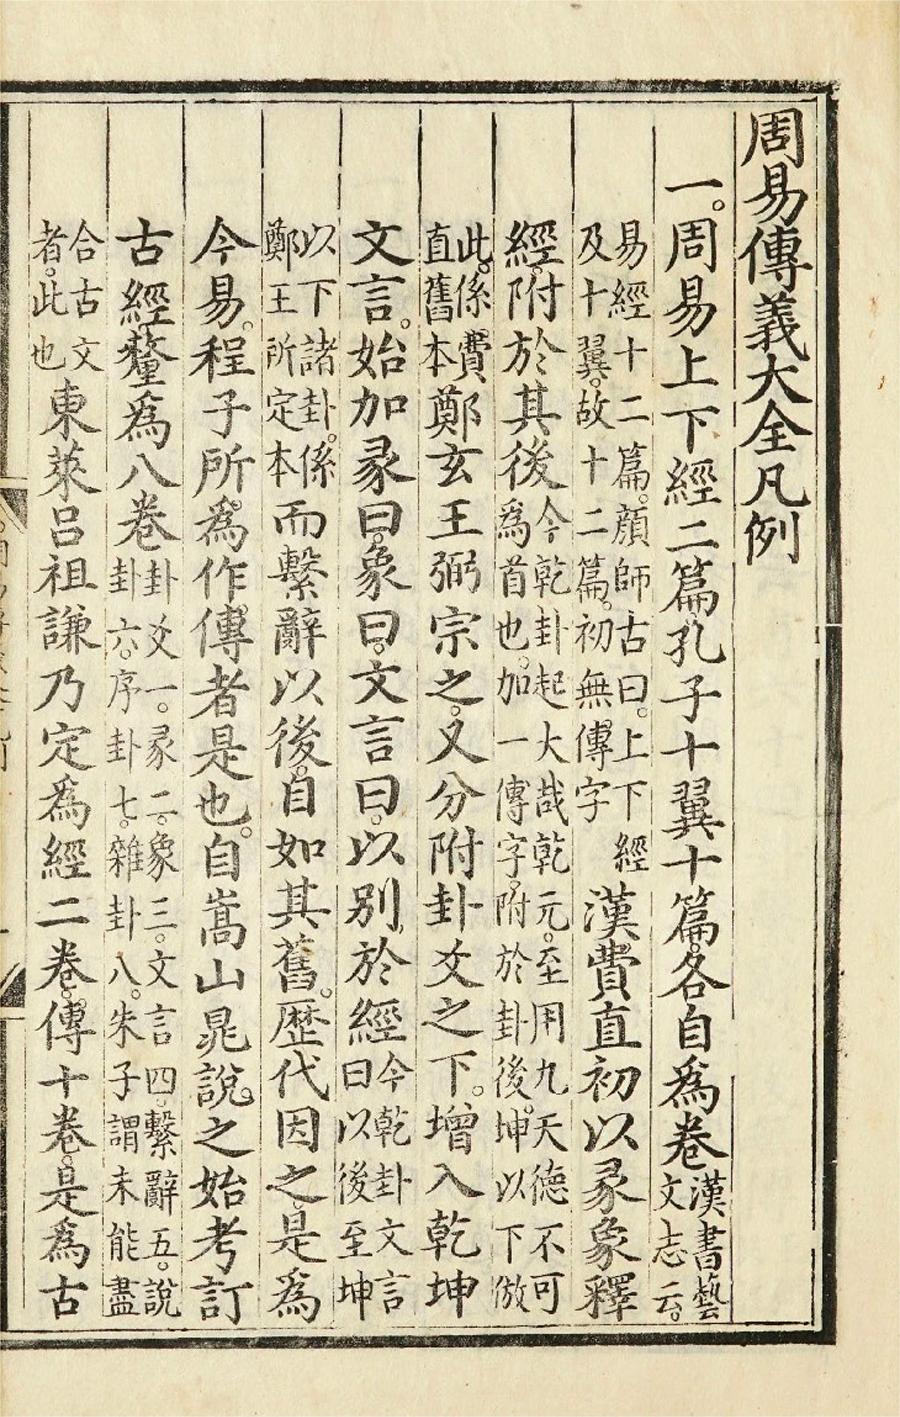 周易傳義大全凡例
一。周易上下經二篇。孔子十翼十篇。各自爲卷漢書藝文志云。
易經十二篇。顔師古曰。上下經及十翼。故十二篇。初無傳字漢費直初以彖象釋
經。附於其後今乾卦起大哉乾元。至用九天德不可爲首也。加一傳字。附於卦後。坤以下倣
此。係費直舊本鄭玄王弼宗之。又分附卦爻之下。增入乾坤
文言。始加彖曰。象曰。文言曰。以別於經今乾卦文言曰以後至坤
以下諸卦。係鄭王所定本而繫辭以後。自如其舊。歷代因之。是爲
今易。程子所爲作傳者是也。自嵩山晁說之始考訂
古經釐爲八卷卦爻一。彖二。象三。文言四。繫辭五。說卦六。序卦七。雜卦八。朱子謂未能盡
合古文者。此也東萊呂祖謙乃定爲經二卷。傳十卷。是爲古